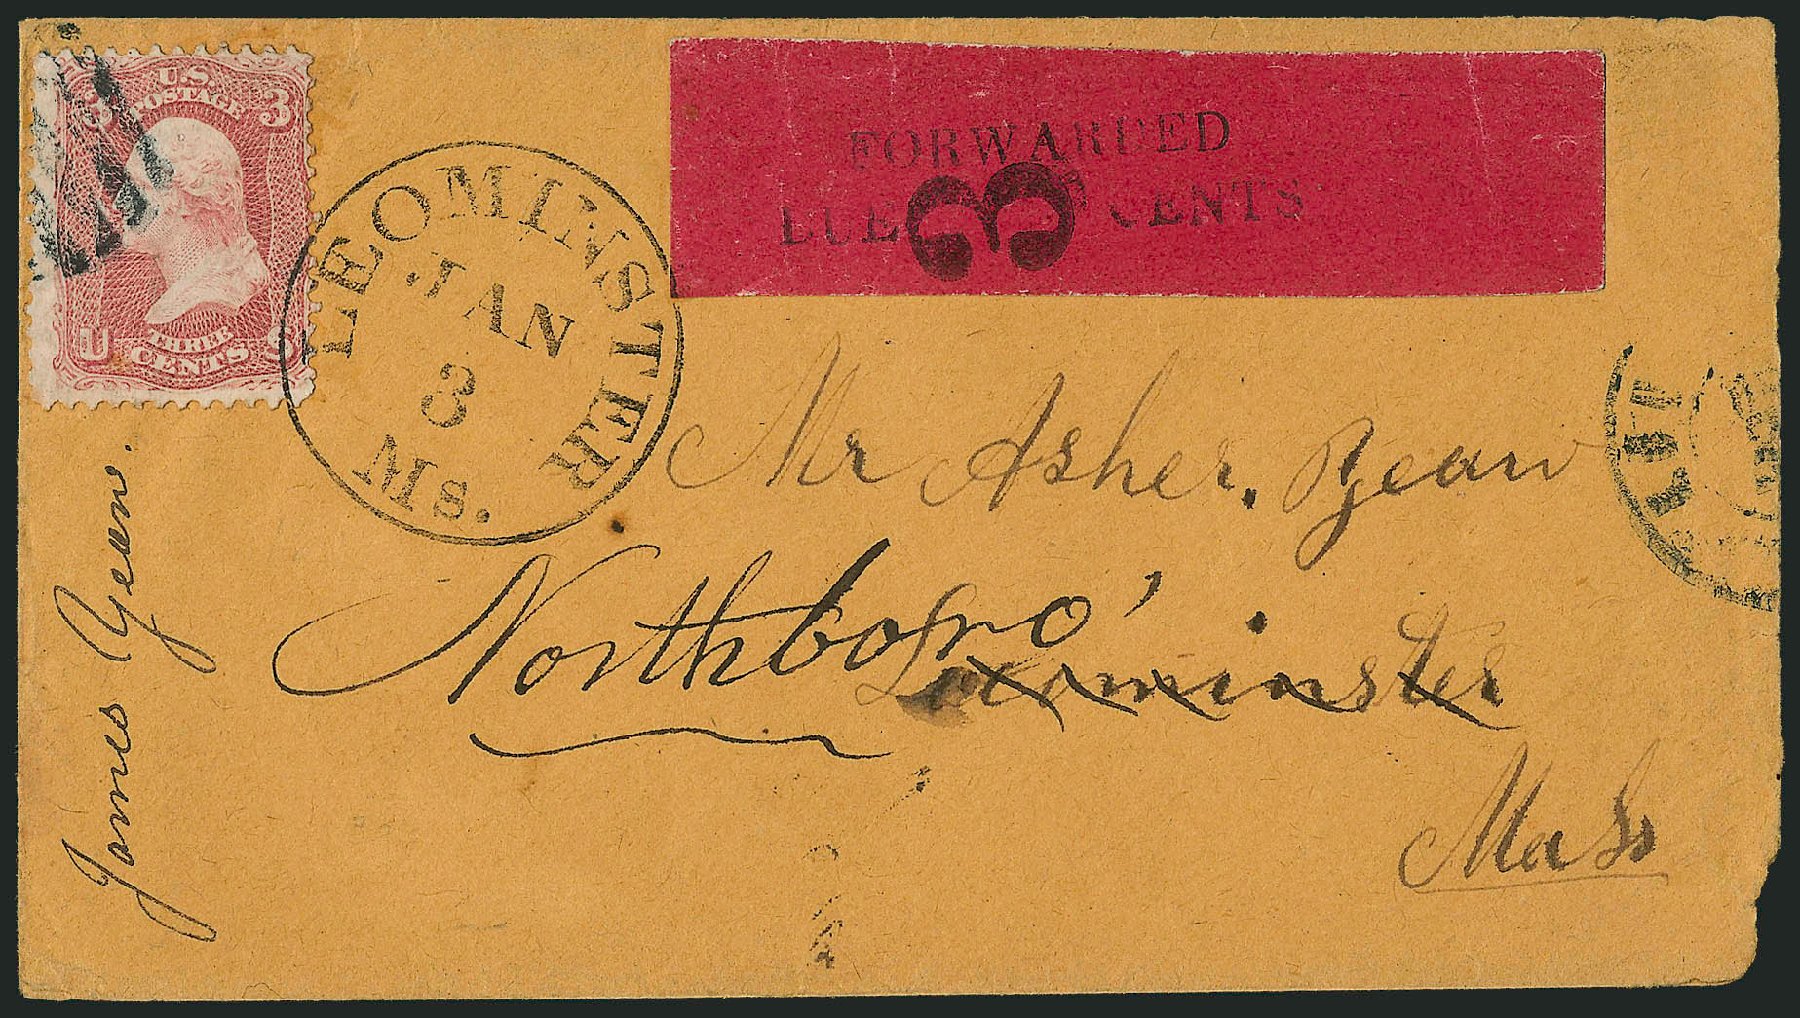 3 U.S. 3
POSTAGE
THREE
CENTS
U S
LEOMINSTER
JAN
3
Ms.
FORWARDED
DUE 3 CENTS
Mr Asher. Yeaw
Northboro'
Leominster
Mass
James Yeaw.